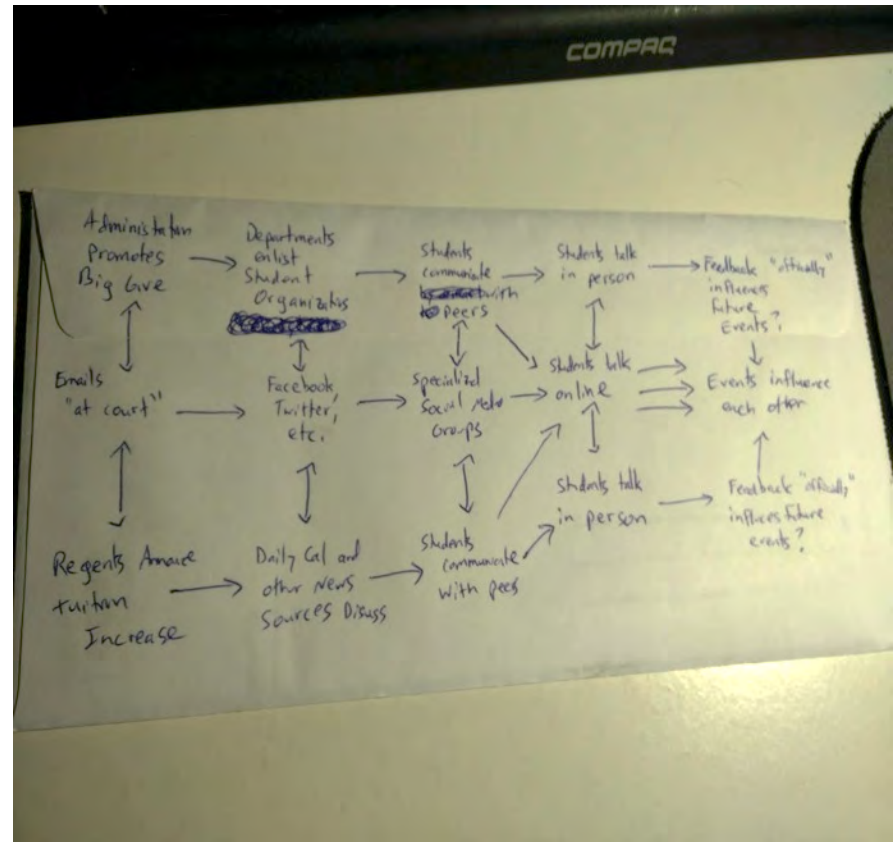 COMPAQ
Administration
Promotes
Big Give
Departments
enlist
Student
Organizations
Students
communicate
with
peers
Students talk
in person
Feedback "officially"
influences
future
Events?
Emails
"at court"
Facebook,
Twitter,
etc.
Specialized
Social Media
Groups
Students talk
online
Events influence
each other
Regents Announce
tuition
Increase
Daily Cal and
other News
Sources Discuss
Students
communicate
with peers
Students talk
in person
Feedback "officially"
influences future
events?